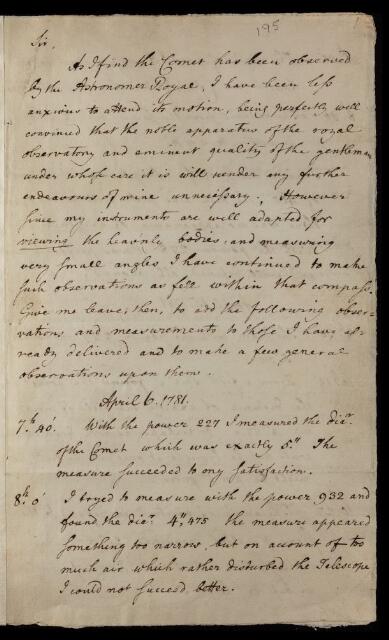 195
Sir,
As I find the Comet has been observed
by the Astronomer Royal, I have been less
anxious to attend its motion, being perfectly well
convinced that the noble apparatus of the royal
observatory and eminent quality of the gentleman
under whose care it is will render any further
endeavours of mine unnecessary. However
since my instruments are well adapted for
viewing the heavenly bodies, and measuring
very small angles I have continued to make
such observations as fell within that compass.
Give me leave, then, to add the following obser=
vations and measurements to those I have al-
ready delivered and to make a few general
observations upon them.
April 6. 1781.
7.h 40'. With the power 227 I measured the dia.r
of the Comet which was exactly 5." The
measure succeeded to my satisfaction.
8.h 0' I tryed to measure with the power 932 and
found the dia.r 4",475 the measure appeared
something too narrow, but on account of too
much air which rather disturbed the Telescope
I could not succeed better.